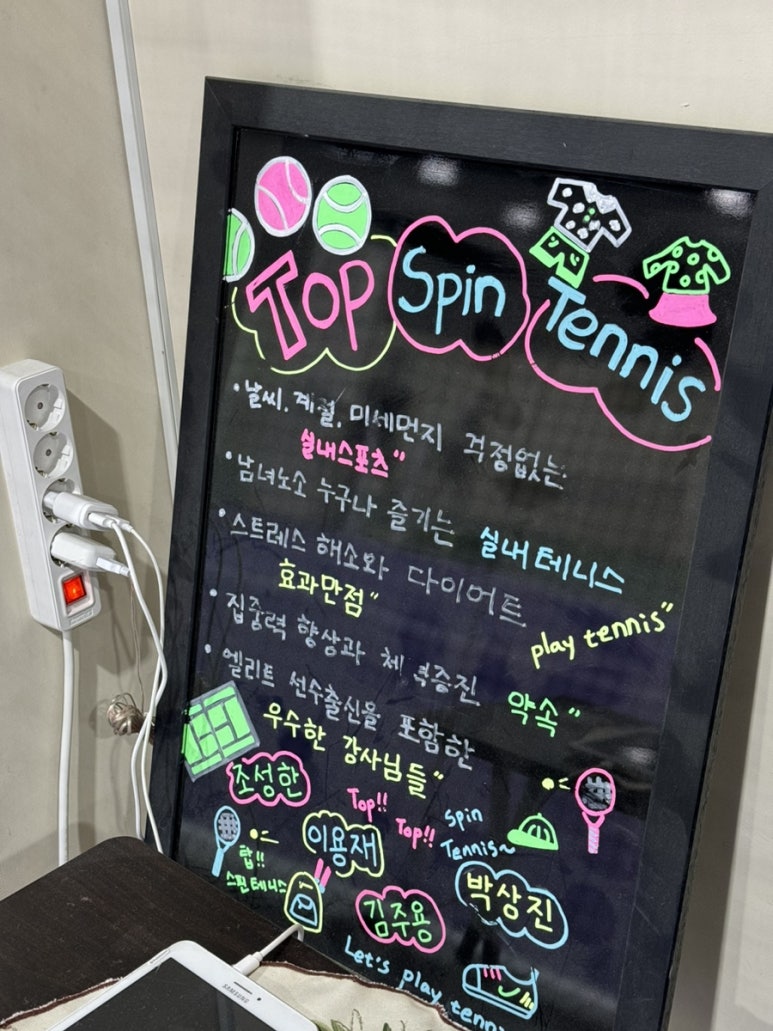 Top Spin Tennis
• 날씨, 계절, 미세먼지 걱정없는
실내스포츠"
• 남녀노소 누구나 즐기는 실내테니스
• 스트레스 해소와 다이어트
효과만점"
play tennis"
• 집중력 향상과 체력증진 약속"
• 엘리트 선수출신을 포함한
우수한 강사님들"
조성한
Top!! Top!! Spin
Tennis~
이용재
탑!!
스핀테니스
박상진
김주용
Let's play tennis
SAMSUNG